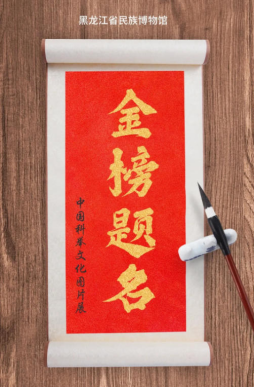 黑龙江省民族博物馆
金榜题名
中国科举文化图片展